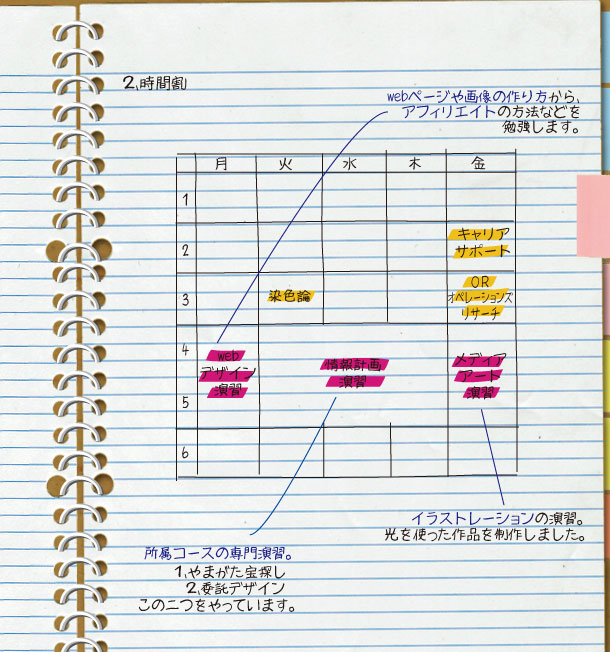 2,時間割
webページや画像の作り方から、
アフィリエイトの方法などを
勉強します。
月 火 水 木 金
1
2
キャリア
サポート
3
染色論
OR
オペレーションズ
リサーチ
4
web
デザイン
演習
情報計画
演習
メディア
アート
演習
5
6
イラストレーションの演習。
光を使った作品を制作しました。
所属コースの専門演習。
1,やまがた宝探し
2,委託デザイン
この二つをやっています。